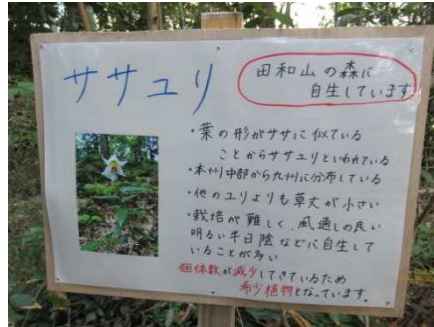 ササユリ
田和山の森に
自生しています
・葉の形がササに似ている
ことからササユリといわれている
・本州中部から九州に分布している
・他のユリよりも草丈が小さい
・栽培が難しく、風通しの良い
明るい半日陰などに自生して
いることが多い
個体数が減少してきているため
希少植物となっています。